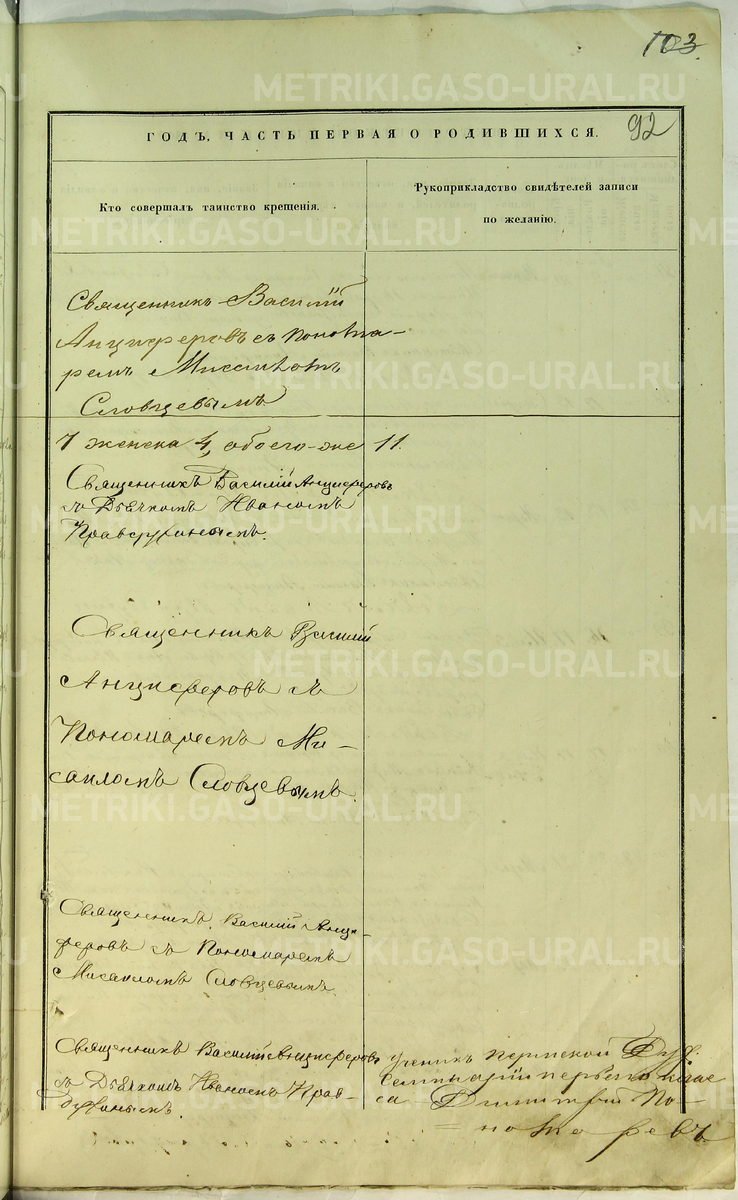 103.
92
ГОДЪ. ЧАСТЬ ПЕРВАЯ О РОДИВШИХСЯ.
Кто совершалъ таинство крещенія.
Рукоприкладство свидѣтелей записи
по желанію.
Священникъ Василій
Анциферовъ съ Понома-
ремъ Мисаиломъ
Словцевымъ
7 женска 4, обоего-же 11.
Священникъ Василій Анциферовъ
съ Дьячкомъ Иваномъ
Священникъ Василій
Анциферовъ съ
Пономаремъ Ми-
саиломъ Словцевымъ.
Священникъ Василій Анци-
феровъ съ Пономаремъ
Мисаиломъ Словцевымъ.
Священникъ Василій Анциферовъ
съ Дьячкомъ Иваномъ
Ученикъ Пермской Дух:
Семинаріи перваго клас
са Димитрій По-
номаревъ
METRIKI.GASO-URAL.RU